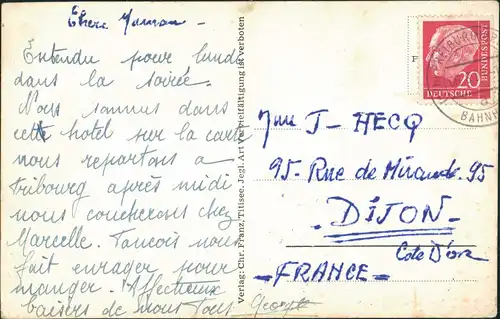 Chère Maman -
Entendu pour lundi
dans la soirée.
Nous sommes dans
cet hotel sur la carte
nous repartons a
Fribourg après midi
nous coucherons chez
Marcelle. Francois nous
fait enrager pour
manger. Affectueux
baisers de nous tous
Verlag: Chr. Franz, Titisee. Jegl. Art Vervielfältigung ist verboten
20
DEUTSCHE BUNDESPOST
FREIBURG
BAHNH
Mme J - HECQ
95 - Rue de Mirande - 95
- DIJON -
Cote D'or
- FRANCE -